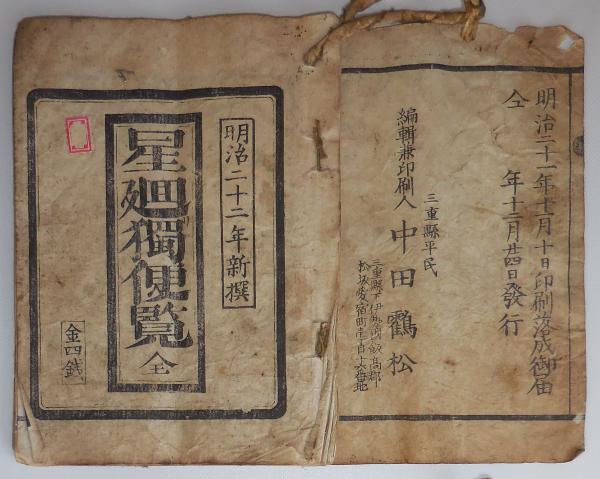 明治二十一年十二月十日印刷落成御届
仝　年十二月廿四日發行
三重縣平民
編輯兼印刷人　中田鶴松
三重縣下伊勢國飯高郡
松坂愛宕町
番地
明治二十二年新撰
星廻獨便覧　全
金四銭